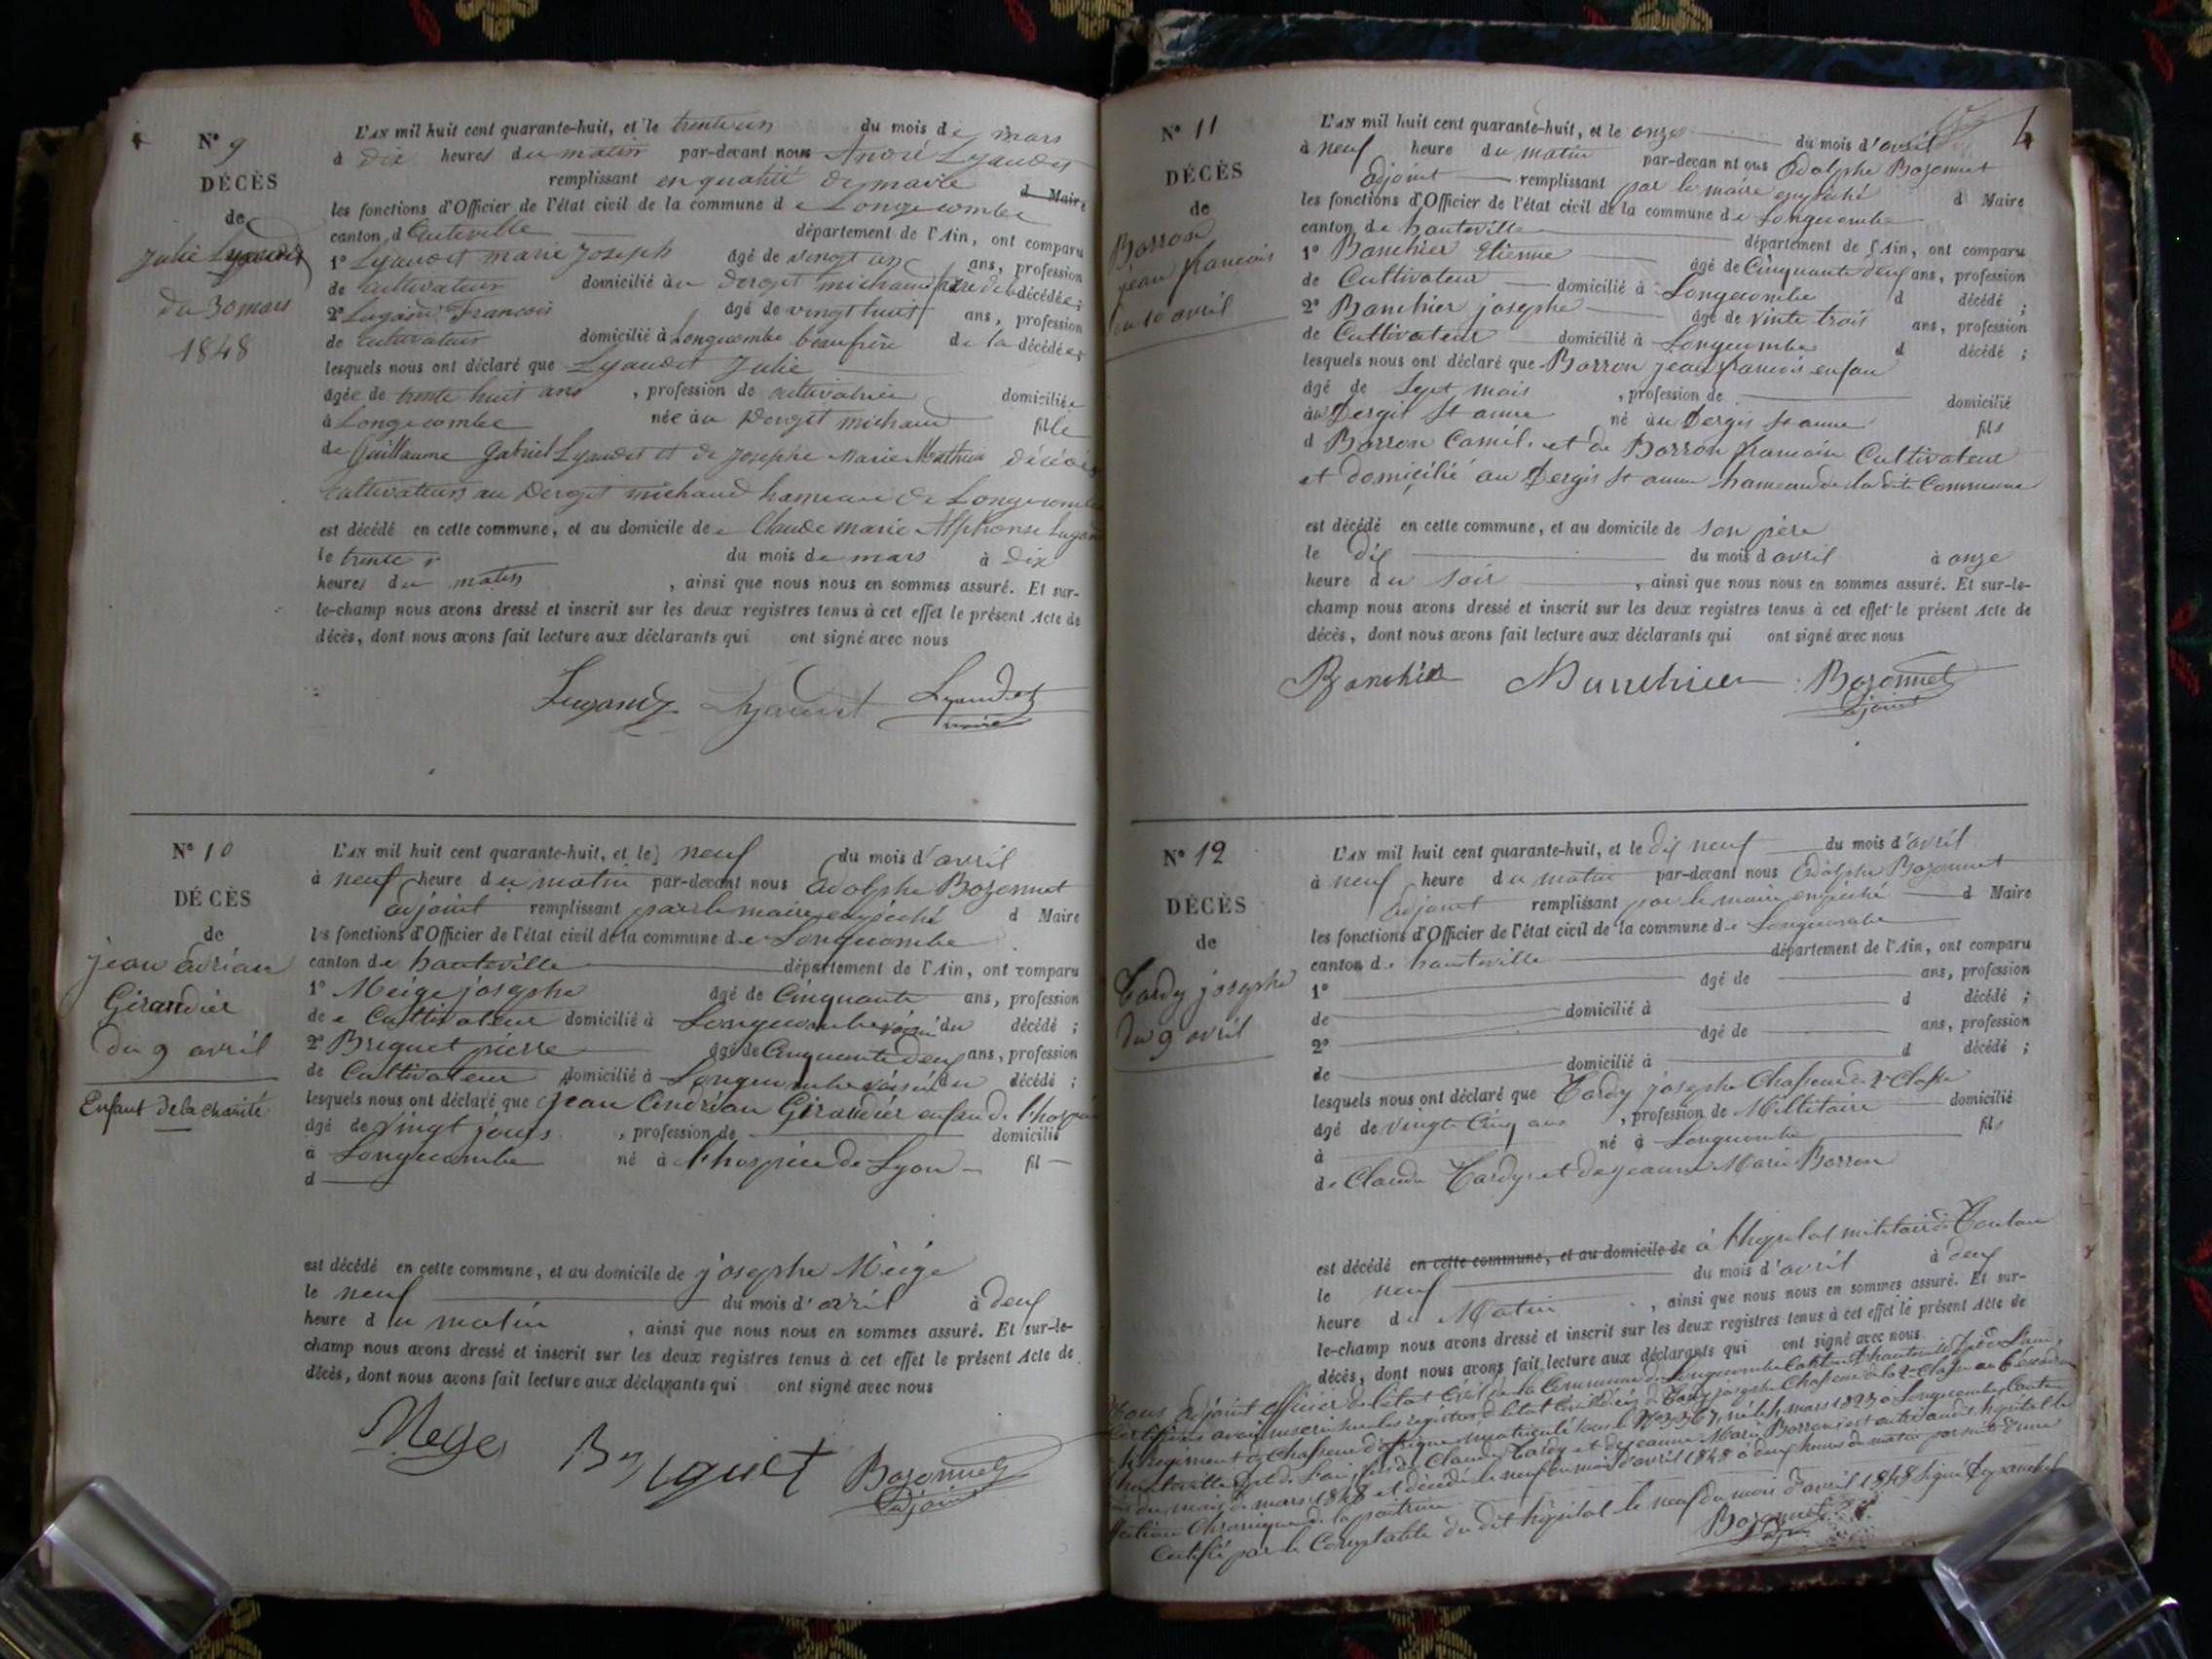 N° 9
DÉCÈS
de
Julie Lyaudet
du 30 mars
1848
L'AN mil huit cent quarante-huit, et le trente un du mois de mars
à dix heures du matin par-devant nous André Lyaudet
remplissant en qualité de maire d Maire
les fonctions d'Officier de l'état civil de la commune de Longecombe
canton d'auteville département de l'Ain, ont comparu
1° Lyaudet marie Joseph âgé de vingt un ans, profession
de cultivateur domicilié au Derget michaud frère de la décédée;
2° Lugand Francois âgé de vingt huit ans, profession
de cultivateur domicilié à Longecombe beaufrère de la décédée;
lesquels nous ont déclaré que Lyaudet Julie
âgée de trente huit ans, profession de cultivatrice domiciliée
à Longecombe née au Derget michaud fille
de Guillaume Gabriel Lyaudet et de Josephe Marie Mathieu décédés
cultivateurs au Derget michaud hameau de Longecombe
est décédé en cette commune, et au domicile de Claude marie Alphonse Lugand
le trente du mois de mars à dix
heures du matin, ainsi que nous nous en sommes assuré. Et sur-
le-champ nous avons dressé et inscrit sur les deux registres tenus à cet effet le présent Acte de
décès, dont nous avons fait lecture aux déclarants qui ont signé avec nous
Lugand Lyaudet Lyaudet
maire
N° 10
DÉCÈS
de
jean adrian
Girandier
du 9 avril
Enfant de la charité
L'AN mil huit cent quarante-huit, et le neuf du mois d'avril
à neuf heure du matin par-devant nous Adolphe Bozonnet
adjoint remplissant par le maire empéché d Maire
les fonctions d'Officier de l'état civil de la commune de Longecombe
canton de hauteville département de l'Ain, ont comparu
1° Meige josephe âgé de Cinquante ans, profession
de Cultivateur domicilié à Longecombe voisin du décédé;
2° Briquet pierre âgé de Cinquante deux ans, profession
de Cultivateur domicilié à Longecombe voisin du décédé;
lesquels nous ont déclaré que Jean Andrian Girandier enfan de l'hospice
âgé de Vingt jours, profession de domicilié
à Longecombe né à l'hospice de Lyon fil
d
est décédé en cette commune, et au domicile de josephe Meige
le neuf du mois d'avril à deux
heure du matin, ainsi que nous nous en sommes assuré. Et sur-le-
champ nous avons dressé et inscrit sur les deux registres tenus à cet effet le présent Acte de
décès, dont nous avons fait lecture aux déclarants qui ont signé avec nous
Meige Briquet Bozonnet
adjoint
4
N° 11
DÉCÈS
de
Borron
jean francois
du 10 avril
L'AN mil huit cent quarante-huit, et le onze du mois d'avril
à neuf heure du matin par-devan nt ous Adolphe Bozonnet
adjoint remplissant par le maire empéché d Maire
les fonctions d'Officier de l'état civil de la commune de Longecombe
canton de hauteville département de l'Ain, ont comparu
1° Banchier Etienne âgé de Cinquante deux ans, profession
de Cultivateur domicilié à Longecombe d décédé;
2° Banchier josephe âgé de vinte trois ans, profession
de Cultivateur domicilié à Longecombe d décédé;
lesquels nous ont déclaré que Borron jean francois enfan
âgé de Sept mois, profession de domicilié
au Dergis St anne né au Dergis St anne fils
d Borron Camil. et de Borron francoise Cultivateur
et domicilié au Dergis St anne hameau de la dite Commune
est décédé en cette commune, et au domicile de son père
le dix du mois d'avril à onze
heure du soir, ainsi que nous nous en sommes assuré. Et sur-le-
champ nous avons dressé et inscrit sur les deux registres tenus à cet effet le présent Acte de
décès, dont nous avons fait lecture aux déclarants qui ont signé avec nous
Banchier Banchier Bozonnet
adjoint
N° 12
DÉCÈS
de
Tardy josephe
du 9 avril
L'AN mil huit cent quarante-huit, et le dix neuf du mois d'avril
à neuf heure du matin par-devant nous Adolphe Bozonnet
adjoint remplissant par le maire empéché d Maire
les fonctions d'Officier de l'état civil de la commune de Longecombe
canton de hauteville département de l'Ain, ont comparu
1° âgé de ans, profession
de domicilié à d décédé;
2° âgé de ans, profession
de domicilié à d décédé;
lesquels nous ont déclaré que Tardy josephe Chasseur de 2e Classe
âgé de vingte Cinq ans, profession de Militaire domicilié
à né à Longecombe fils
de Claude Tardy et de jeanne Marie Borron
est décédé en cette commune, et au domicile de à l'hopital militaire de Toulon
le neuf du mois d'avril à deux
heure du Matin, ainsi que nous nous en sommes assuré. Et sur-
le-champ nous avons dressé et inscrit sur les deux registres tenus à cet effet le présent Acte de
décès, dont nous avons fait lecture aux déclarants qui ont signé avec nous
Nous Adjoint officier de l'état Civil de la Commune de Longecombe Canton d'hauteville Dpt de l'ain,
Certifions avoir inscri sur les registres de l'état Civil Tardy josephe Chasseur de la 2e Classe au 6 escadron
4 Régiment de Chasseur d'afrique matriculé sous le né le 4 mars 1823 à Longecombe Canton
hauteville Dpt de l'ain, fils de Claude Tardy et de jeanne Marie Borron est entré audit hopital le
du mois de mars 1848 et décédé le neuf du mois d'avril 1848 à deux heures du matin par suite d'une
Chronique de la poitrine
Certifié par le Comptable du dit hôpital le neuf du mois d'avril 1848 signé
Bozonnet